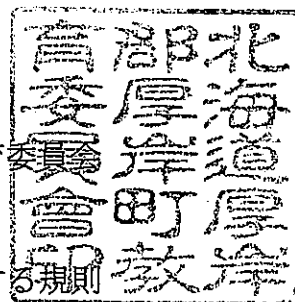 北海道厚岸
郡厚岸町教
育委員會印
委員会
る規則